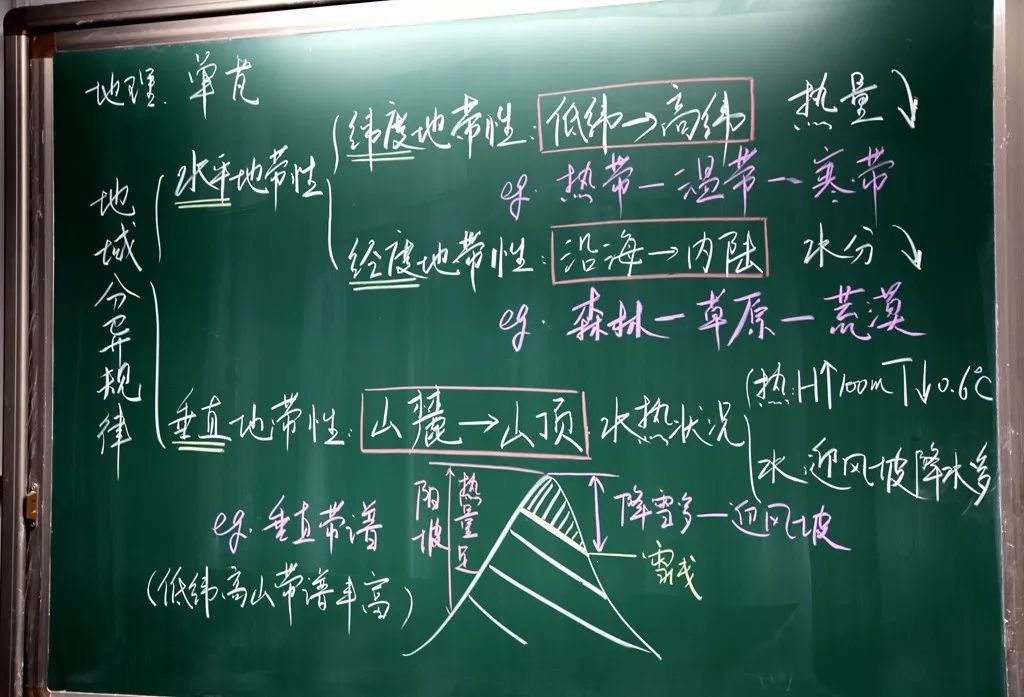 地理. 单艽
地域分异规律
水平地带性
纬度地带性: 低纬→高纬 热量↘
eg. 热带—温带—寒带
经度地带性: 沿海→内陆 水分↘
eg. 森林—草原—荒漠
垂直地带性: 山麓→山顶 水热状况
热:H↑100m T↓0.6℃
水 迎风坡降水多
阳坡
热量足
降雪多—迎风坡
雪线
eg. 垂直带谱
(低纬高山带谱丰高)